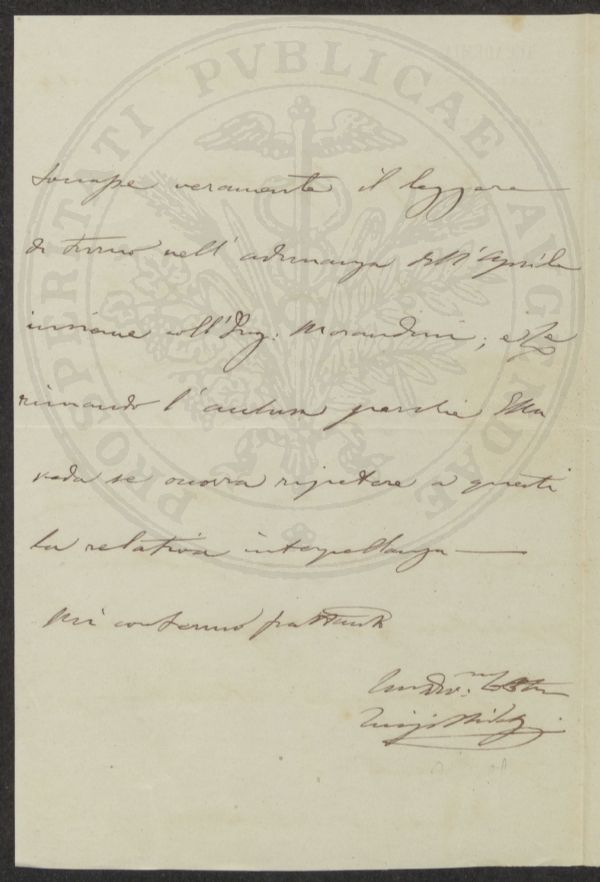 PROSPERITATI PVBLICAE AVGENDAE
veramente il leggere
di turno nell'adunanza dell'Aprile
insieme coll'Ing: Morandini; e Le
rimando l'acclusa perchè Ella
veda se occorra ripetere a questi
la relativa interpellanza —
Mi confermo frattanto
Luigi